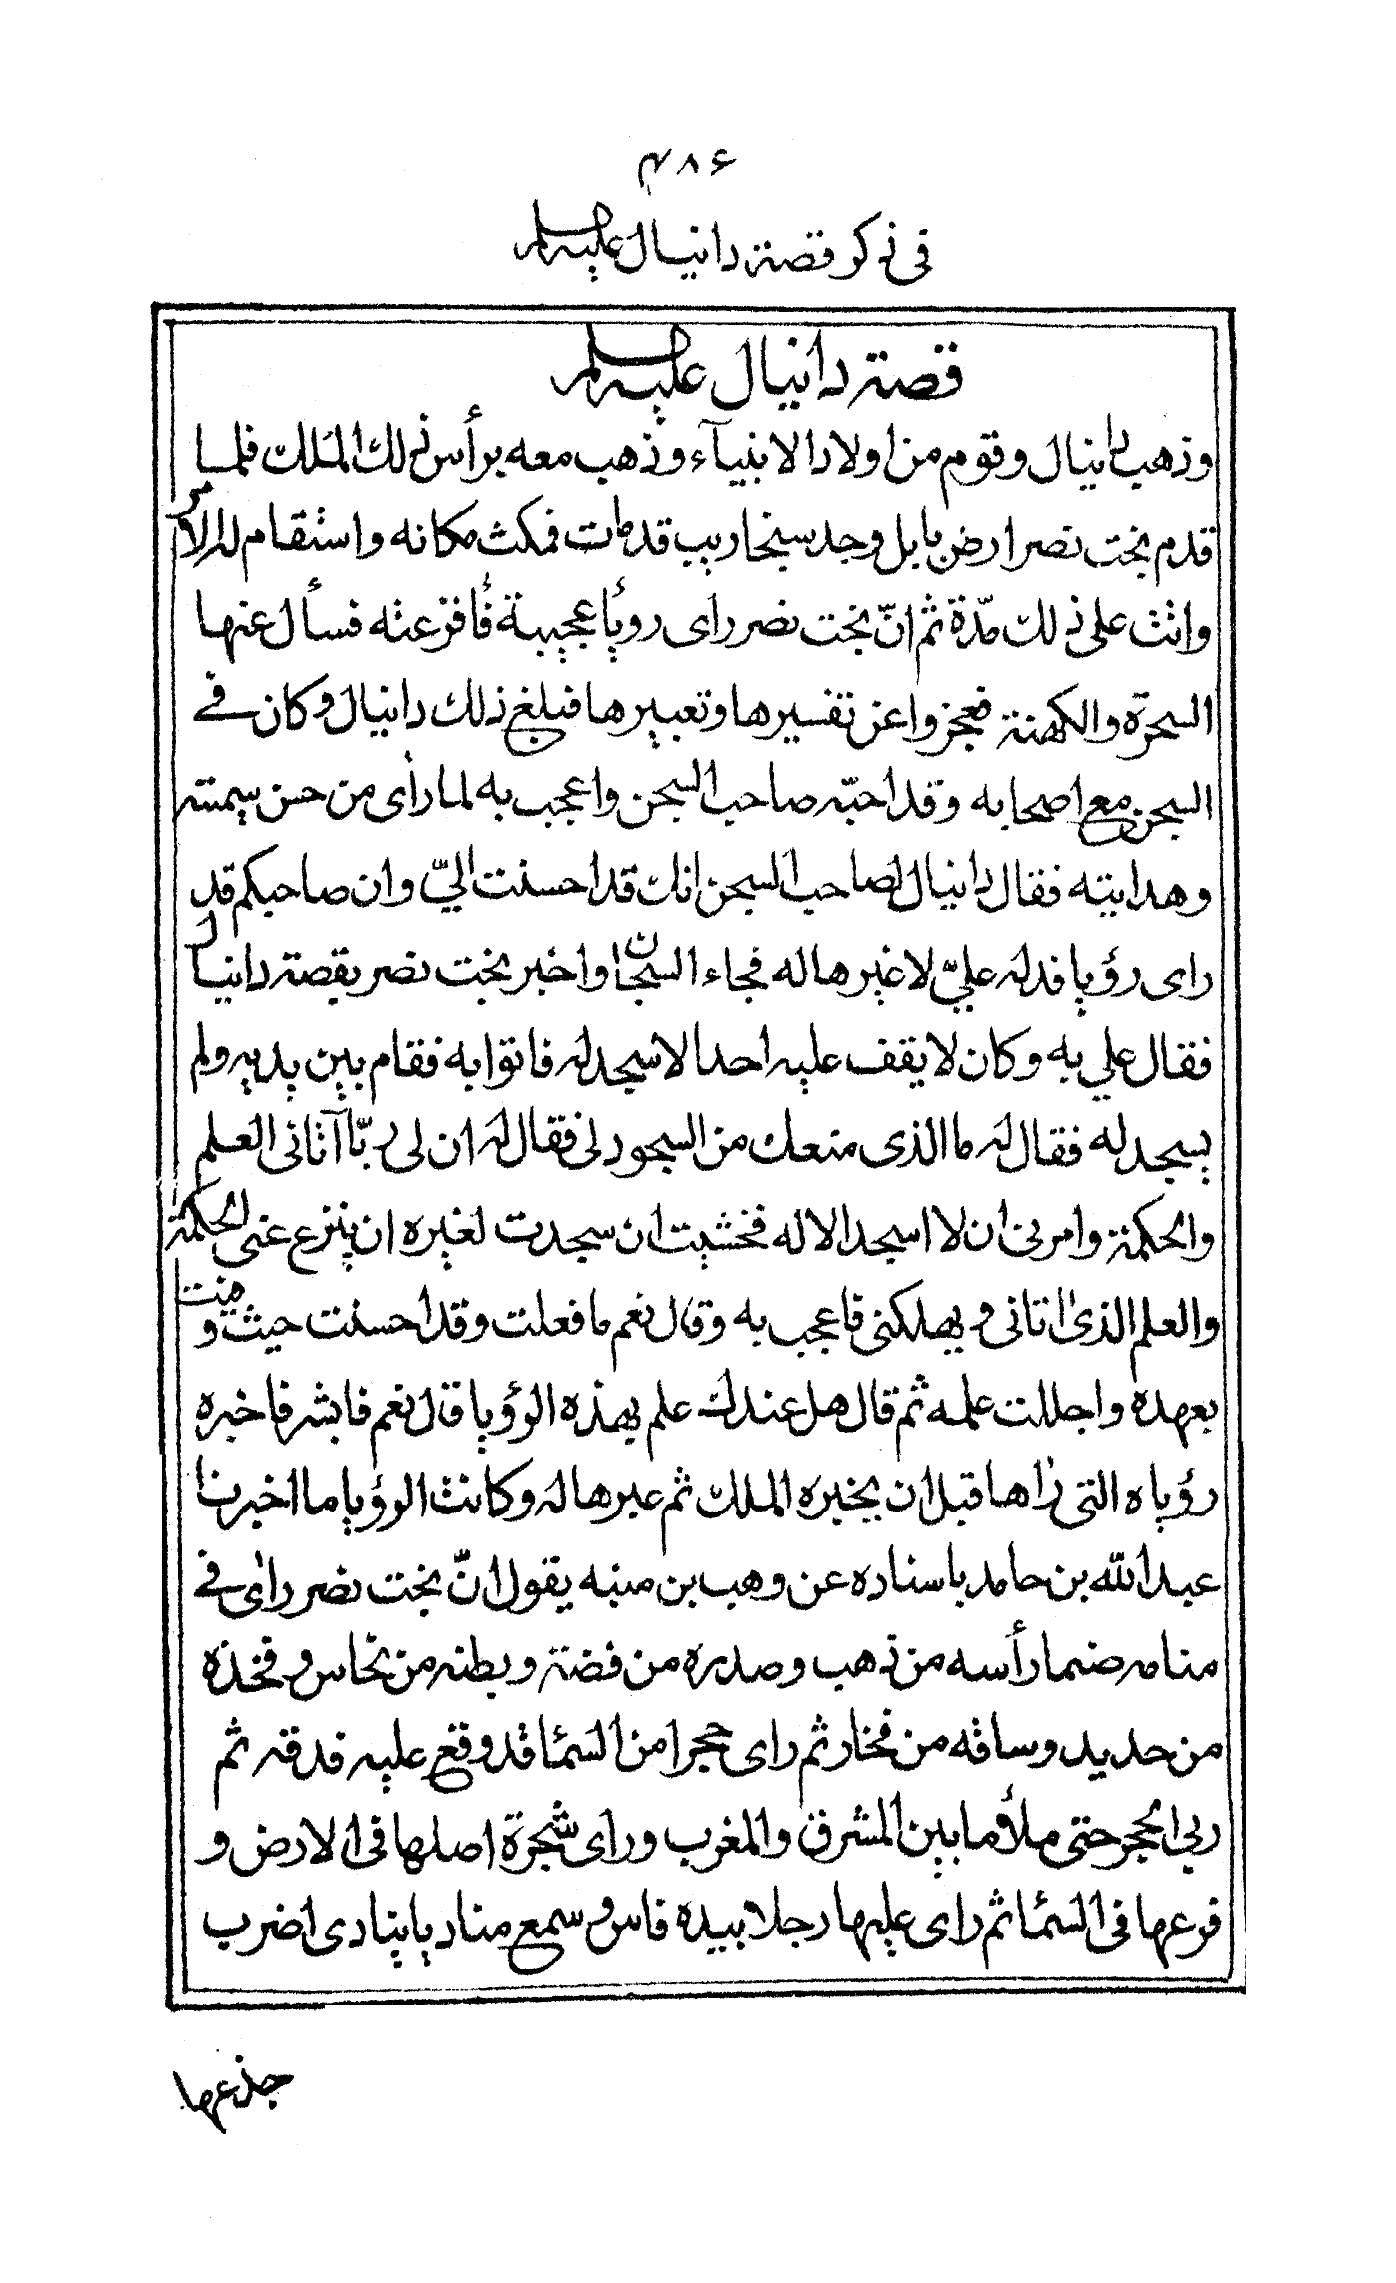 ۴۸۶
في ذكر قصة دانيال عليه السلم
قصة دانيال عليه السلم
وذهب دانيال وقوم من اولاد الانبيآء وذهب معه برأس ذلك الملك فلما
قدم بخت نصر ارض بابل وجد سنجاريب قد مات فمكث مكانه واستقام له الامر
واثت على ذلك مدّة ثم انّ بخت نصر راى رؤيا عجيبة فأفزعته فسأل عنها
السحرة والكهنة فعجزوا عن تفسيرها وتعبيرها فبلغ ذلك دانيال وكان في
السجن مع اصحابه وقد احبّه صاحب السجن واعجب به لما رأى من حسن سيمته
وهدايته فقال دانيال لصاحب السجن انك قد احسنت اليّ وان صاحبكم قد
راى رؤيا فدله عليّ لاغيرها له فجاء السجان واخبر بخت نصر بقصة دانيال
فقال علي به وكان لا يقف عليه احد الا سجد له فاتوا به فقام بين يديه ولم
يسجد له فقال له ما الذى منعك من السجود لى فقال له ان لى ربّا آتانى العلم
والحكمة وامرنى ان لا اسجد الا له فخشيت ان سجدت لغيره ان ينزع عنى الحكمة
والعلم الذى اتانى ويهلكنى فاعجب به وقال نعم ما فعلت وقد احسنت حيث وفيت
بعهده واجللت علمه ثم قال هل عندك علم بهذه الرؤيا قال نعم فابشر فاخبره
رؤياه التى رٰاها قبل ان يخبره الملك ثم عبرها له وكانت الرؤيا ما اخبرنا
عبد الله بن حامد باسناده عن وهب بن منبه يقول انّ بخت نصر رأى في
منامه صنما رأسه من ذهب وصدره من فضة وبطنه من نحاس وفخذه
من حديد وساقه من فخار ثم راى حجرا من السما قد وقع عليه فدقه ثم
ربي الحجر حتى ملأ ما بين المشرق والمغرب وراى شجرة اصلها فى الارض و
فرعها فى السما ثم راى عليها رجلا بيده فاس وسمع مناديا ينادى اضرب
جذعها